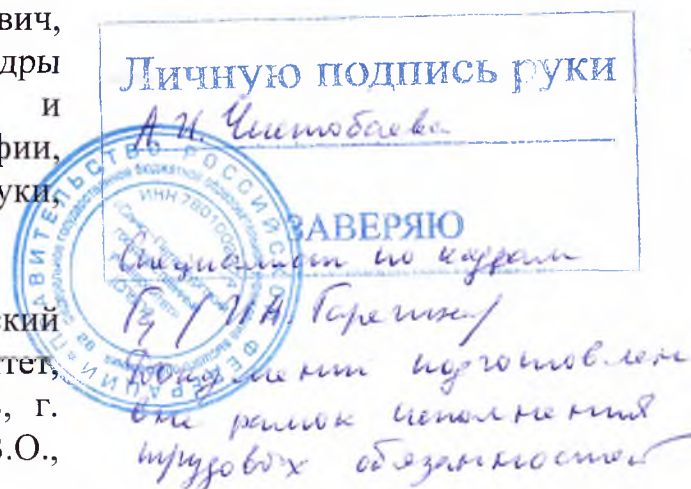 вич,
дры
и
фии,
уки,
ский
тет,
, г.
В.О.,
Личную подпись руки
А.Н. Чистобаева
ЗАВЕРЯЮ
Специалист по кадрам
/ И.А.
Документ подготовлен
вне рамок исполнения
трудовых обязанностей
ПРАВИТЕЛЬСТВО РОССИЙСКОЙ ФЕДЕРАЦИИ